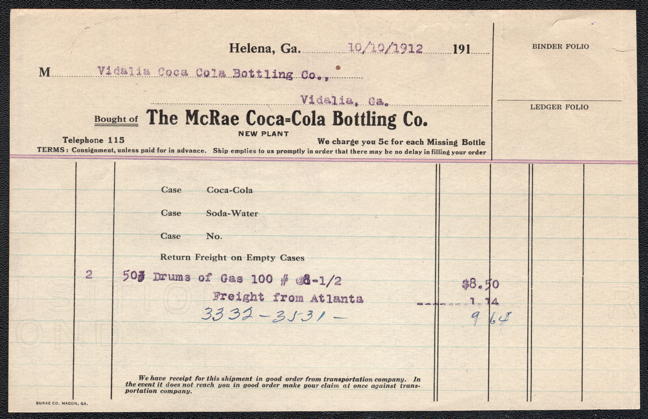 Helena, Ga. 10/10/1912 191
BINDER FOLIO
M Vidalia Coca Cola Bottling Co.,
Vidalia, Ga.
LEDGER FOLIO
Bought of The McRae Coca=Cola Bottling Co.
NEW PLANT
Telephone 115 We charge you 5c for each Missing Bottle
TERMS: Consignment, unless paid for in advance. Ship empties to us promptly in order that there may be no delay in filling your order
Case Coca-Cola
Case Soda-Water
Case No.
Return Freight on Empty Cases
2 50# Drums of Gas 100 # @ 8-1/2 $8.50
Freight from Atlanta 1.14
3332-3531- 9 64
We have receipt for this shipment in good order from transportation company. In
the event it does not reach you in good order make your claim at once against trans-
portation company.
BURKE CO. MACON, GA.